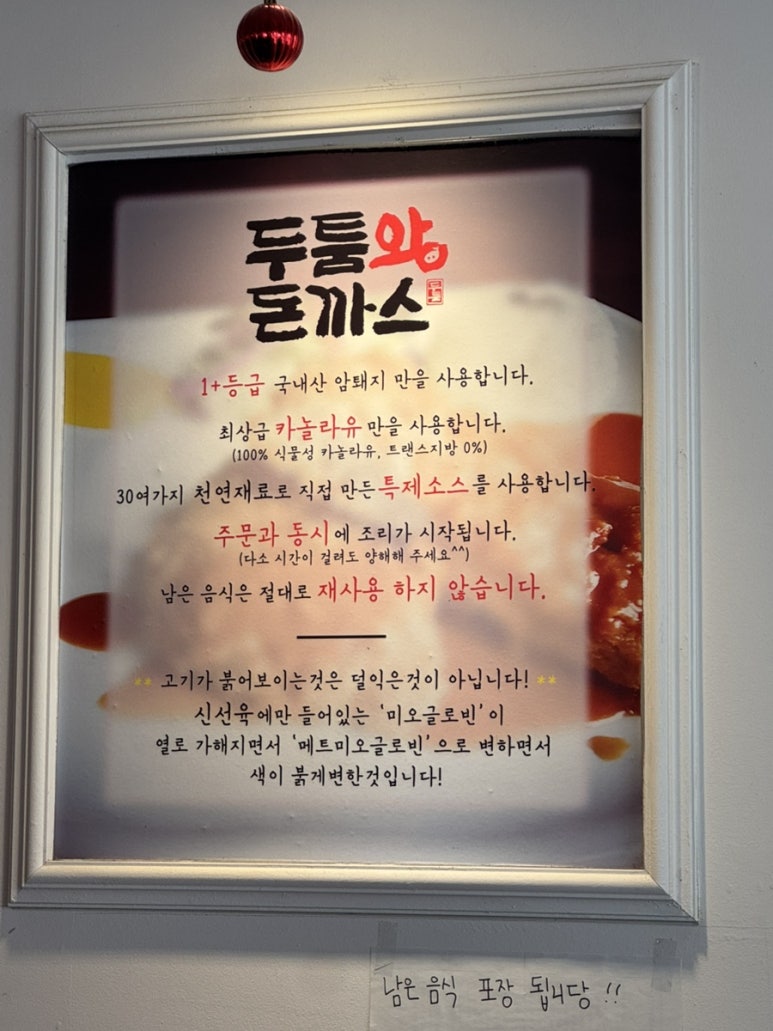 두툼왕
돈까스
1+등급 국내산 암퇘지 만을 사용합니다.
최상급 카놀라유 만을 사용합니다.
(100% 식물성 카놀라유, 트랜스지방 0%)
30여가지 천연재료로 직접 만든 특제소스를 사용합니다.
주문과 동시에 조리가 시작됩니다.
(다소 시간이 걸려도 양해해 주세요^^)
남은 음식은 절대로 재사용 하지 않습니다.
** 고기가 붉어보이는것은 덜익은것이 아닙니다! **
신선육에만 들어있는 '미오글로빈'이
열로 가해지면서 '메트미오글로빈'으로 변하면서
색이 붉게변한것입니다!
남은 음식 포장 됩니당 !!